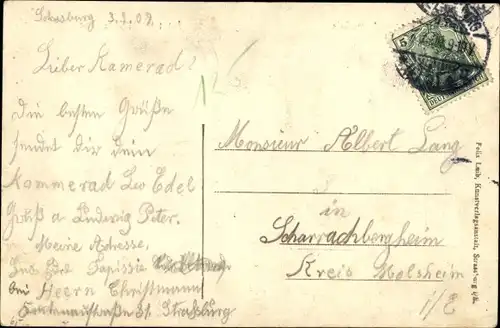 Strassburg 3.1.09
Lieber Kamerad!
Die besten Grüße
sendet dir dein
Kammerad Leo Edel
Gruß a Ludwig Peter.
Meine Adresse.
Tapissie
bei Heern Christmann
St. Straßburg
126
5
DEUTSCHES
Monsieur Albert Lang
in
Scharrachbergheim
Kreis Molsheim
i/E
Felix Luib, Kunstverlagsanstalt, Strassburg i/E.